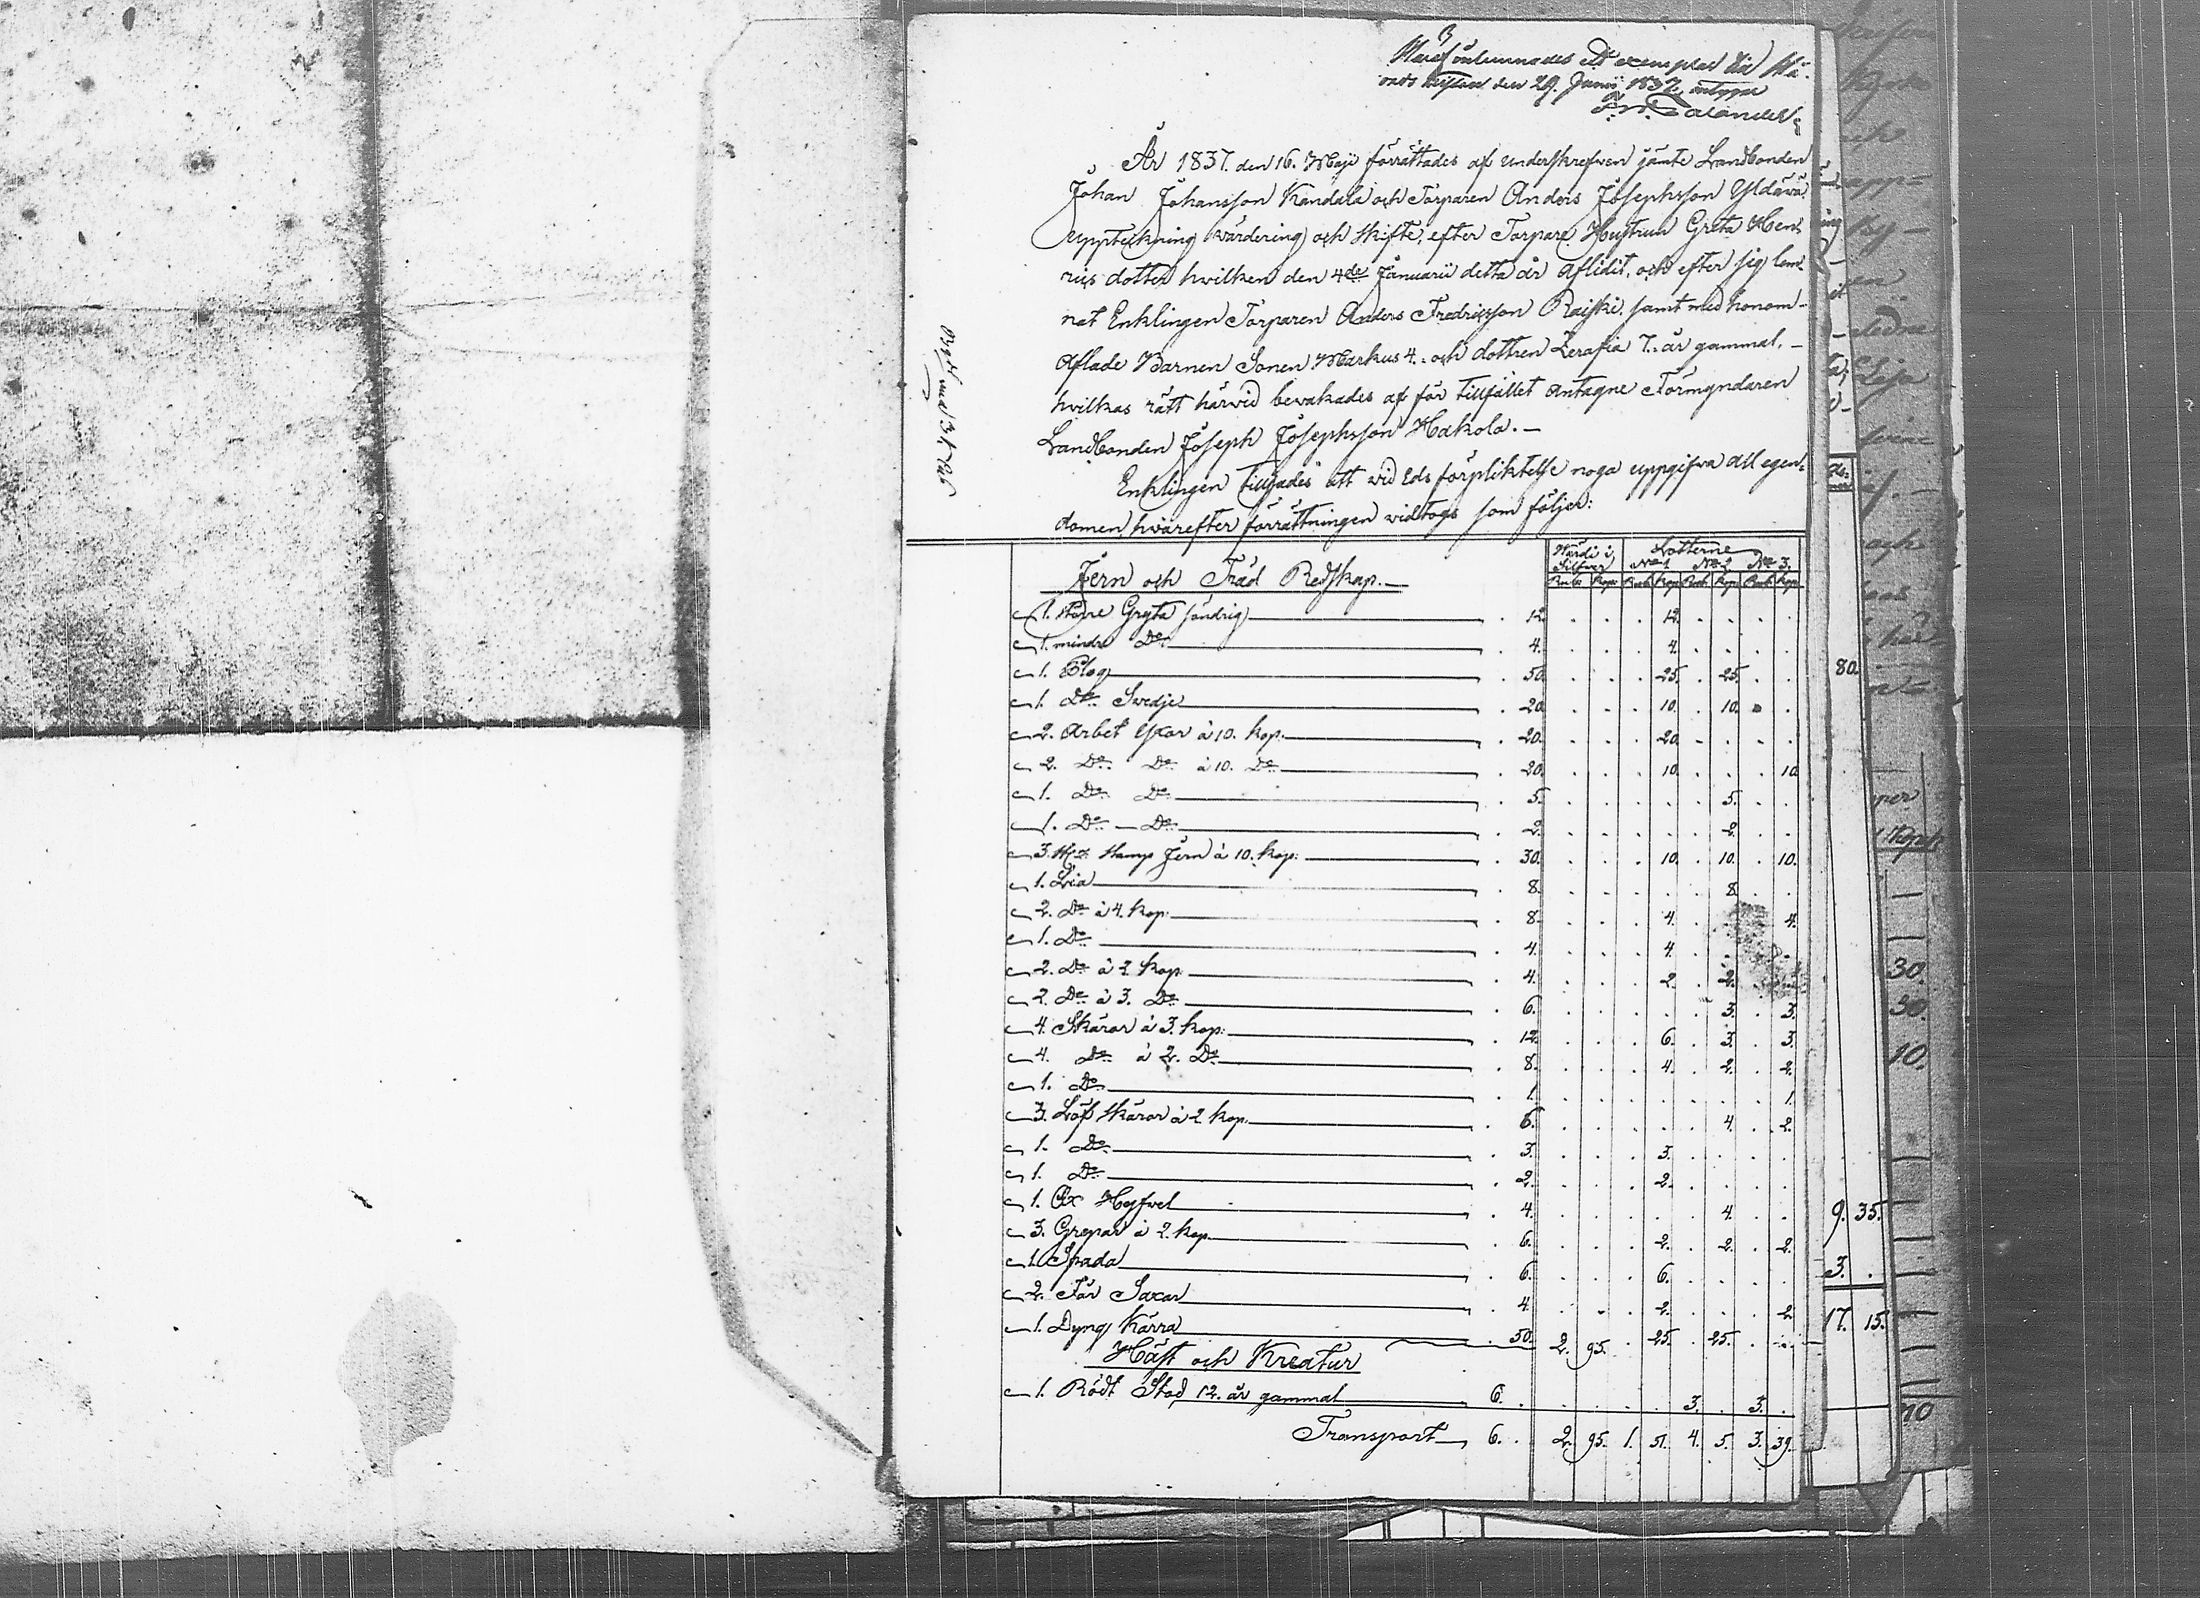 öfverlemnades ett exemplar
den 29. Junii 1837, intygar
År 1837. den 16. Maji förrättades af underskrefven jämte Landbonden
Johan Johansson Kandala och Torparen Anders Josephsson Yldävä
uppteckning värdering och skifte, efter Torpare Hustrun Greta Hen,
rics dotter hvilken den 4de Januarii detta år Aflidit, och efter sig lem,
nat Enklingen Torparen Anders Fredricsson Raiski, samt med honom –
Aflade Barnen Sonen Markus 4. och dottren Zerafia 7. år gammal, –
hvilkas rätt härvid bevakades af för tillfället antagne Förmyndaren
Landbonden Joseph Josephsson Hakola. –
Enklingen tillsades att vid Eds förpliktelse noga uppgifva all egen,
domen, hvarefter förrättningen vidtogs som följer:
Värde i Silfver Lotterne
No 1 No 2 No 3.
Rub: Kop: Rub: Kop: Rub: Kop: Rub: Kop:
Jern och Träd Redskap. –
1. större Gryta söndrig . 12. 12.
1. mindre Do . 4. 4.
1. Plog . 50. 25. 25.
1. Do Svedje . 20. 10. 10.
2. Arbet Yxor à 10. kop: . 20. 20.
2. Do Do à 10. Do . 20. 10. 10.
1. Do Do . 5. 5.
1. Do – Do . 2. 2.
3. Stamp Jern à 10. kop: . 30. 10. 10. 10.
1. Lia . 8. 8.
2. Do à 4. kop: . 8. 4. 4.
1. Do . 4. 4.
2. Do à 2. kop: . 4. 2. 2.
2. Do à 3. Do . 6. 3. 3.
4. Skäror à 3. kop: . 12. 6. 3. 3.
4. Do à 2. Do . 8. 4. 2. 2.
1. Do . 1. 1.
3. Löf skäror à 2 kop: . 6. 4. 2.
1. Do . 3. 3.
1. Do . 2. 2.
1. Hyfvel . 4. 4.
3. Grepar à 2. kop . 6. 2. 2. 2.
1. Spada . 6. 6.
2. Får Saxar . 4 2. 2.
1. Dyng kärra . 50. 2. 95. 25. 25.
Häst och Kreatur
1. Rödt Stod 12. år gammal 6. 3. 3.
Transport 6. 2. 95. 1. 51. 4. 5. 3. 39.
80.
9. 35.
3.
17. 15.
30.
30.
10.